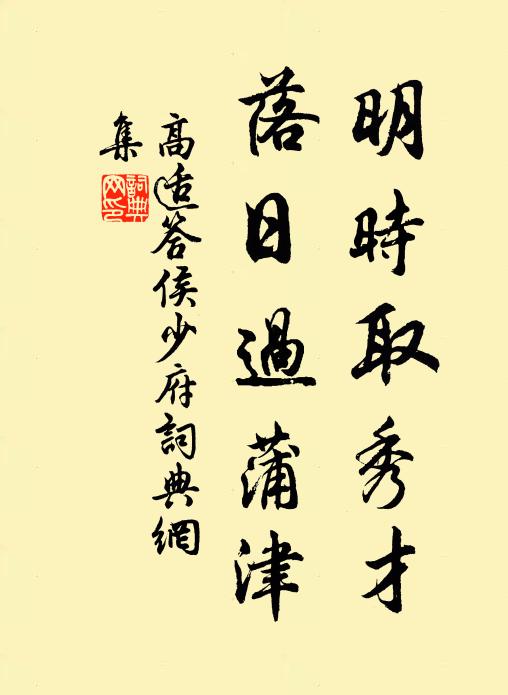 明時取秀才
落日過蒲津
高适答侯少府詞典網
集
詞典網印